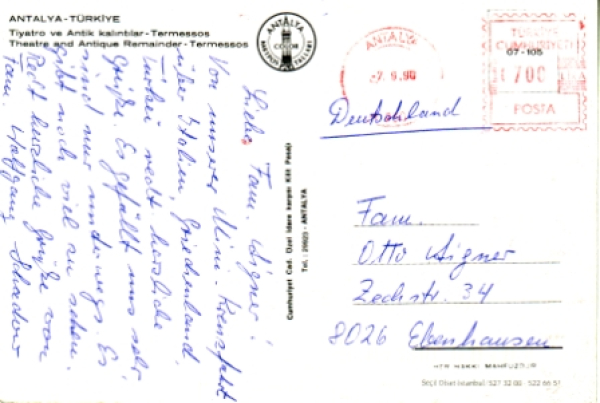 ANTALYA - TÜRKİYE
Tiyatro ve Antik kalıntılar - Termessos
Theatre and Antique Remainder - Termessos
ANTALYA
COLOR
KARTPOSTALLARI
Liebe Fam. Aigner!
Von unserer Mini-Kreuzfahrt
über Italien, Griechenland,
Türkei recht herzliche
Grüße. Es gefällt uns sehr
sind nur unterwegs. Es
gibt noch viel zu sehen.
Recht herzliche Grüße von
Fam. Wolfgang
Cumhuriyet Cad. Özel İdare karşısı Kilit Pasajı
Tel.: 20023 - ANTALYA
ANTALYA
7.9.90
TÜRKİYE
CUMHURİYETİ
07-105
700
POSTA
Deutschland
Fam.
Otto Aigner
Zechstr. 34
8026 Ebenhausen
HER HAKKI MAHFUZDUR
Seçil Ofset (İstanbul) 527 32 00 - 522 66 57